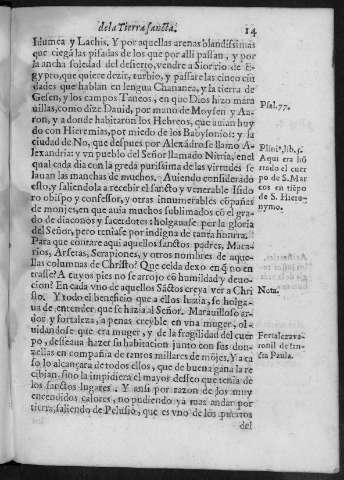 de la Tierra sancta. 14
Idumea y Lachis. Y por aquellas arenas blandissimas
que ciegā las pisadas de los que por alli passan, y por
la ancha soledad del desierto, vendre a Siorrio de E-
gypto, que quiere dezir, turbio, y passare las cinco ciu
dades que hablan en lengua Chananea, y la tierra de
Gesen, y los campos Taneos, en que Dios hizo mara
uillas, como dize Dauid, por mano de Moysen y Aa-
ron, y a donde habitaron los Hebreos, que auian huy
do con Hieremias, por miedo de los Babylonios: y la
ciudad de No, que despues por Alexādro se llamo A-
lexandria: y vn pueblo del Señor llamado Nitria, en el
qual cada dia con la greda purissima de las virtudes se
lauan las manchas de muchos. Auiendo considerado
esto, y saliendola a recebir el sancto y venerable Isido
ro obispo y confessor, y otras innumerables cōpañas
de monjes, en que auia muchos sublimados cō el gra-
do de diaconos y sacerdotes: holgauase por la gloria
del Señor, pero teniase por indigna de tanta honrra.
Para que contare aqui aquellos sanctos padres, Maca-
rios, Arsetas, Serapiones, y otros nombres de aque-
llas columnas de Christo? Que celda dexo en q̄ no en
trasse? A cuyos pies no se arrojo cō humildad y deuo-
cion? En cada vno de aquellos Sāctos creya ver a Chri
sto. Y todo el beneficio que a ellos hazia, se holga-
ua de entender que se hazia al Señor. Marauilloso ar-
dor y fortaleza, a penas creyble en vna muger, ol-
uidandose que era muger, y de la fragilidad del cuer
po, desseaua hazer su habitacion junto con sus don-
zellas en compañia de tantos millares de mōjes, Y a ca
so lo alcançara de todos ellos, que de buena gana la re
cibian, sino la impidiera el mayor desseo que tenia de
los sanctos lugares. Y ansi por razon de los muy
encendidos calores, no pudiendo ya mas andar por
tierra, saliendo de Pelusio, que es vno de los puertos
del
Psal. 77.
Plini°, lib. 5.
Aqui era hō
rrado el cuer
po de S. Mar
cos en tiēpo
de S. Hiero-
nymo.
Nota.
Fortaleza va-
ronil de san-
cta Paula.